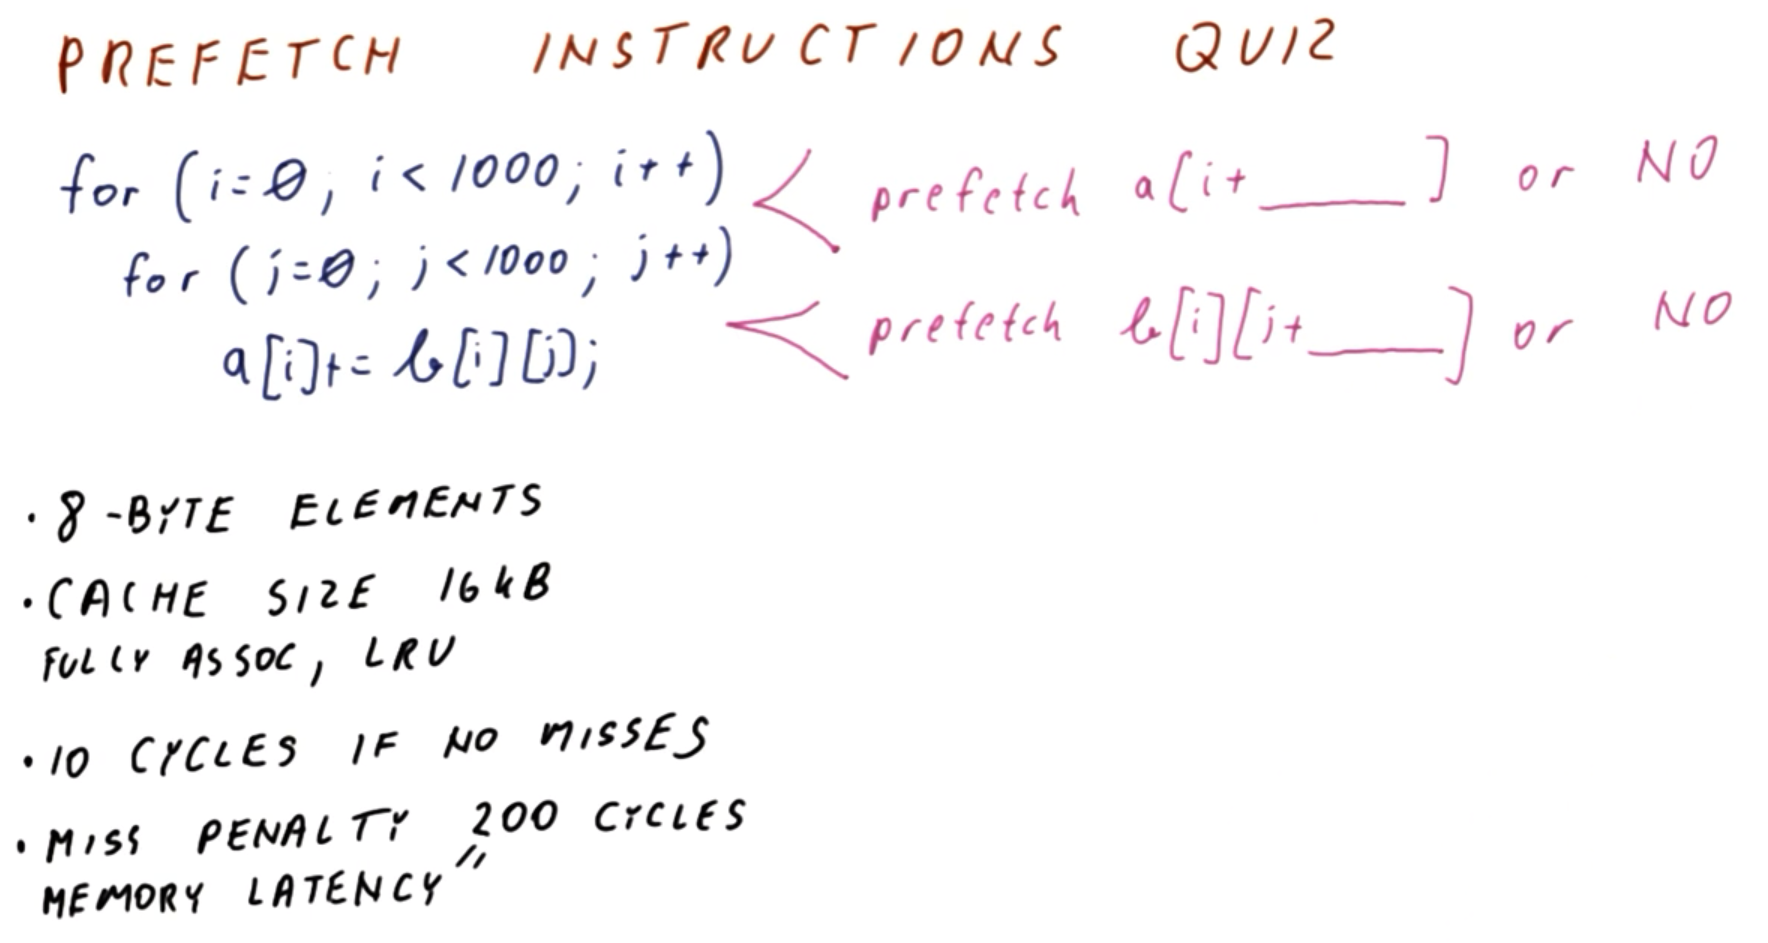 PREFETCH INSTRUCTIONS QUIZ
for (i=0, i<1000; i++) prefetch a[i+____] or NO
for (j=0; j<1000; j++)
a[i]+= b[i][j]; prefetch b[i][j+____] or NO
· 8-BYTE ELEMENTS
· CACHE SIZE 16kB
FULLY ASSOC, LRU
· 10 CYCLES IF NO MISSES
· MISS PENALTY 200 CYCLES
MEMORY LATENCY "